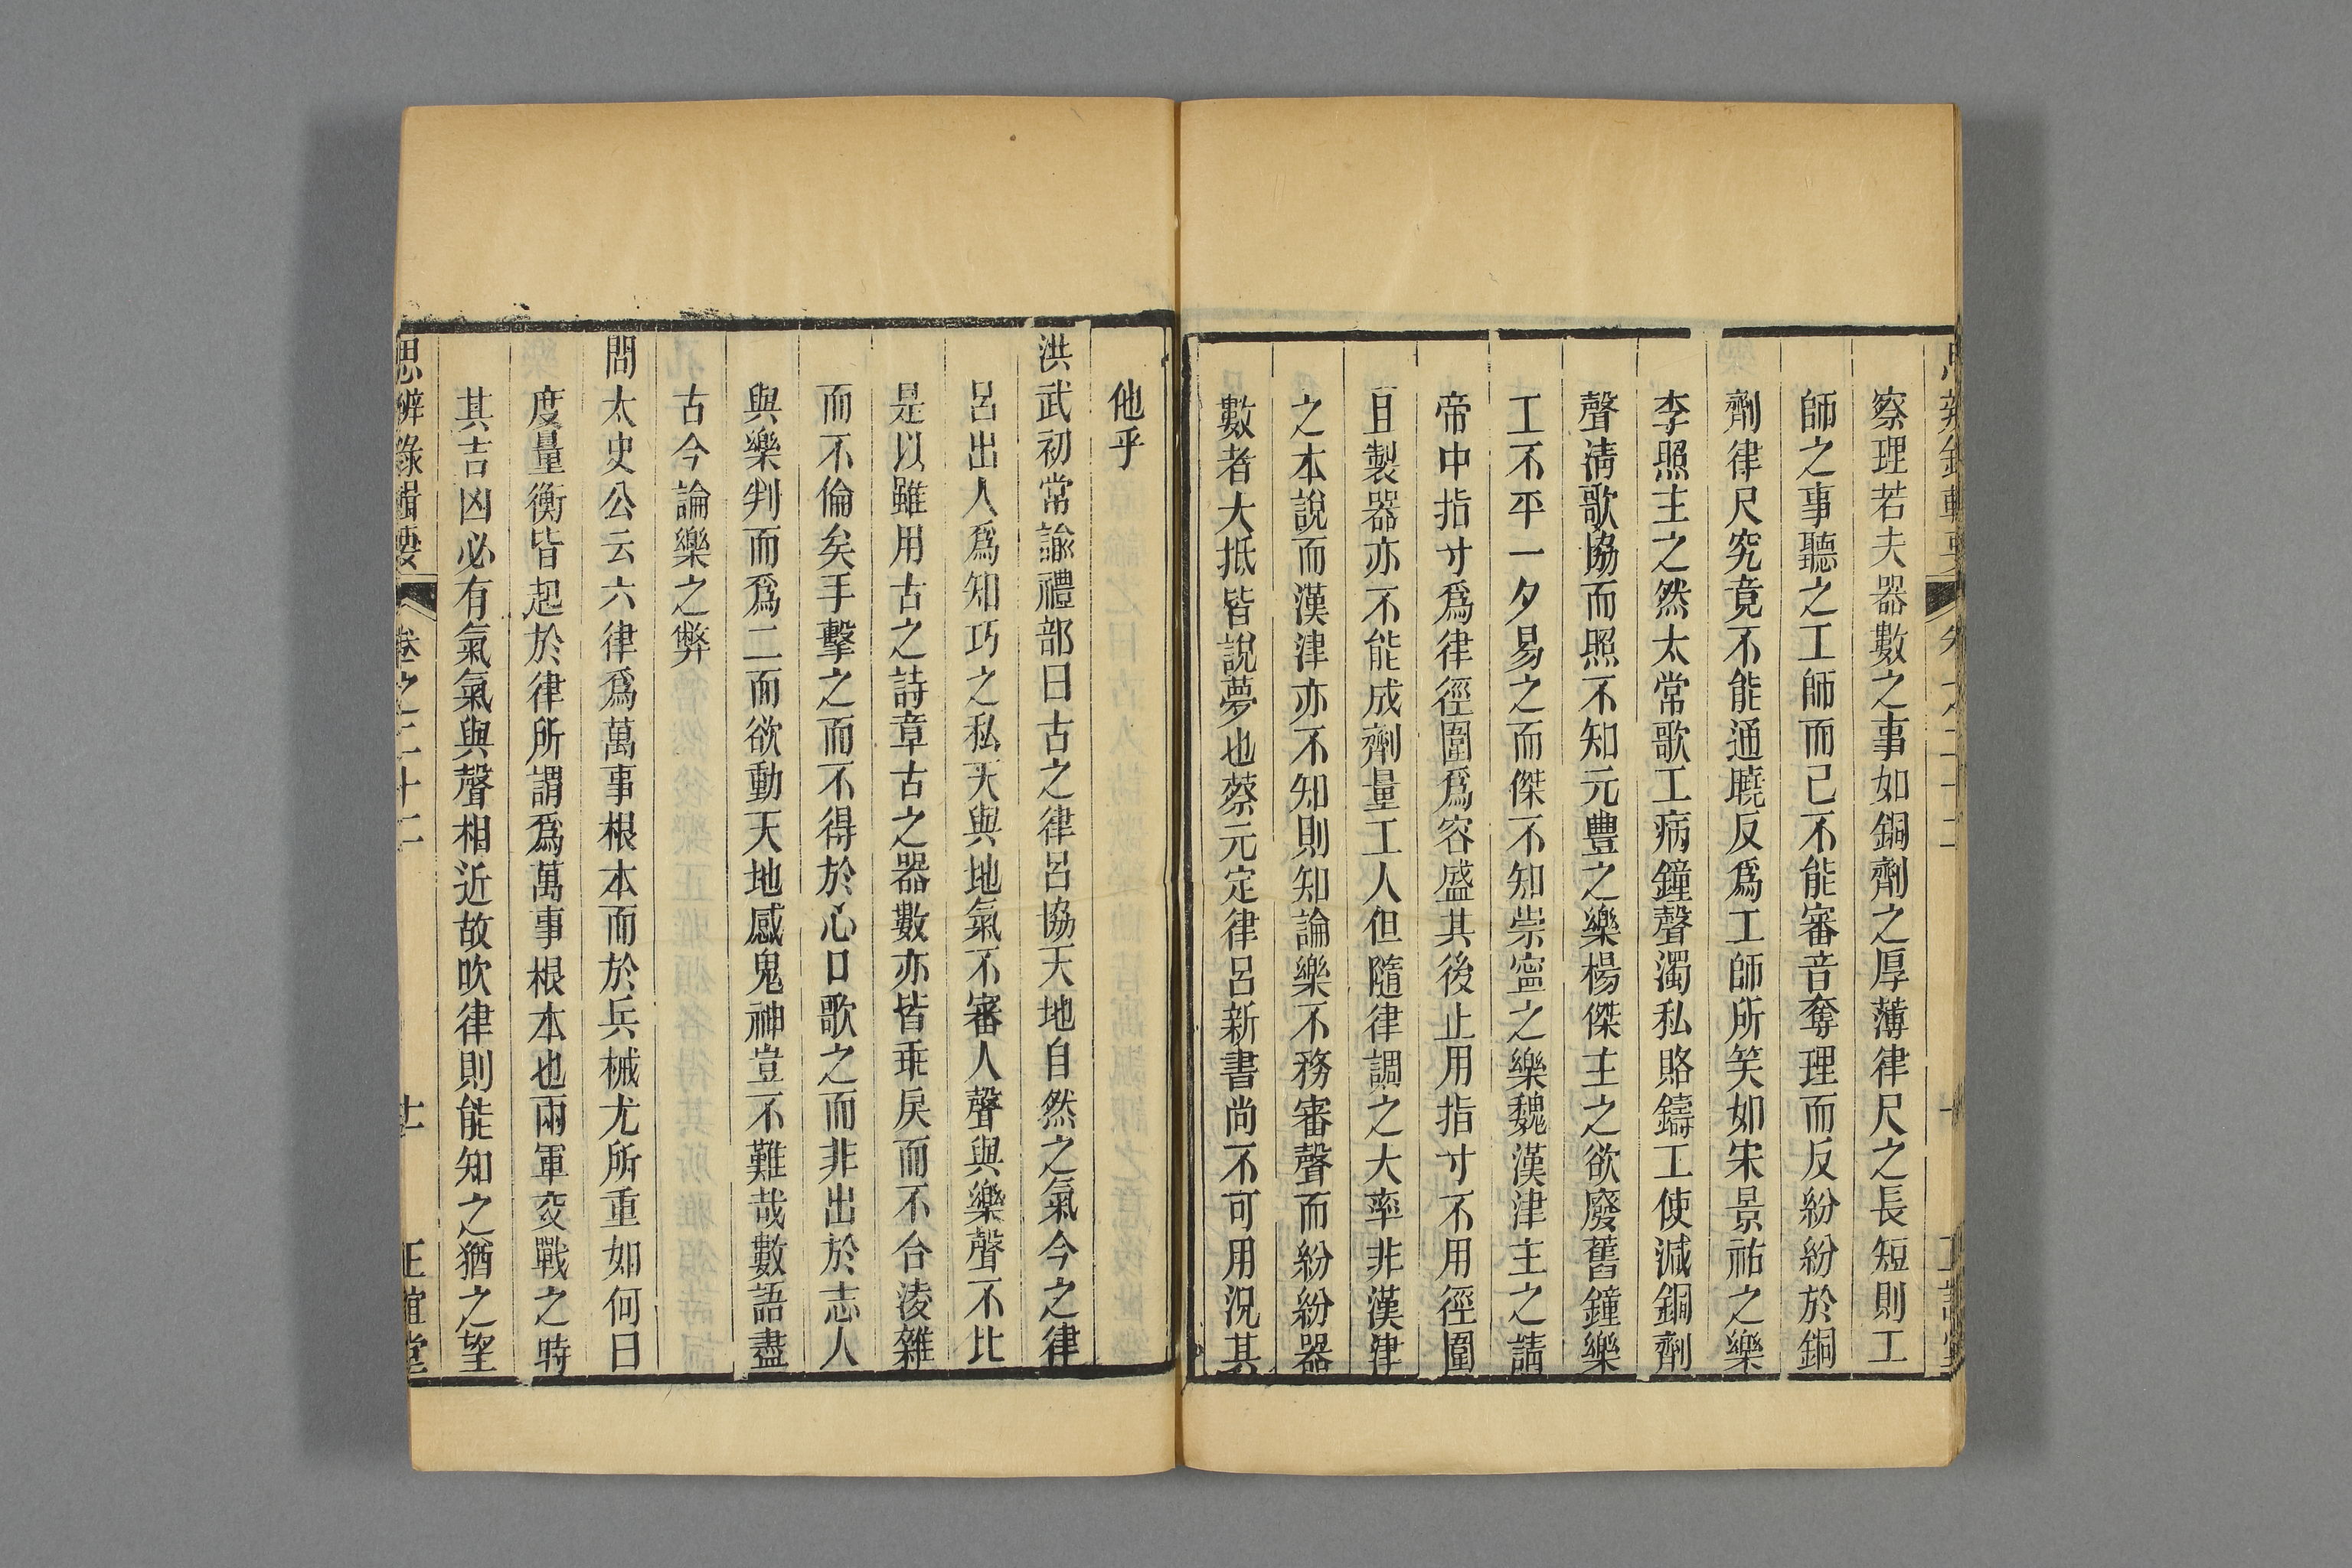 察理若夫器數之事如銅劑之厚薄律尺之長短則工
師之事聽之工師而已不能審音奪理而反紛紛於銅
劑律尺究竟不能通曉反爲工師所笑如宋景祐之樂
李照主之然太常歌工病鐘聲濁私賂鑄工使減銅劑
聲淸歌協而照不知元豐之樂楊傑主之欲廢舊鐘樂
工不平一夕易之而傑不知崇寧之樂魏漢津主之請
帝中指寸爲律徑圍爲容盛其後止用指寸不用徑圍
且製器亦不能成劑量工人但隨律調之大率非漢津
之本說而漢津亦不知則知論樂不務審聲而紛紛器
數者大抵皆說夢也蔡元定律呂新書尚不可用況其
他乎
洪武初常諭禮部曰古之律呂協天地自然之氣今之律
呂出人爲知巧之私天與地氣不審人聲與樂聲不比
是以雖用古之詩章古之器數亦皆乖戾而不合淩雜
而不倫矣手擊之而不得於心口歌之而非出於志人
與樂判而爲二而欲動天地感鬼神豈不難哉數語盡
古今論樂之弊
問太史公云六律爲萬事根本而於兵械尤所重如何曰
度量衡皆起於律所謂爲萬事根本也兩軍交戰之時
其吉凶必有氣氣與聲相近故吹律則能知之猶之望
思辨錄輯要 卷之二十二 十一 正誼堂